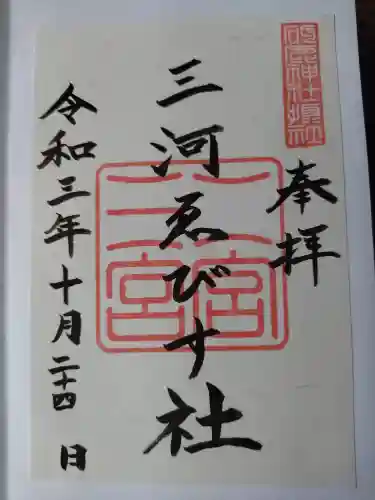 奉拝
三河ゑびす社
令和三年十月二十四日
二宮
砥鹿神社摂社